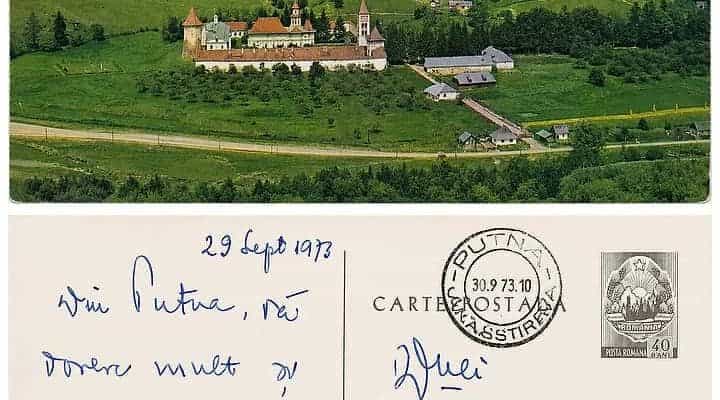 29 Sept 1973
Din Putna, vă
doresc mult și
CARTE POSTALA
PUTNA
30.9 73.10
ROMANIA
POSTA ROMANA
40
BANI